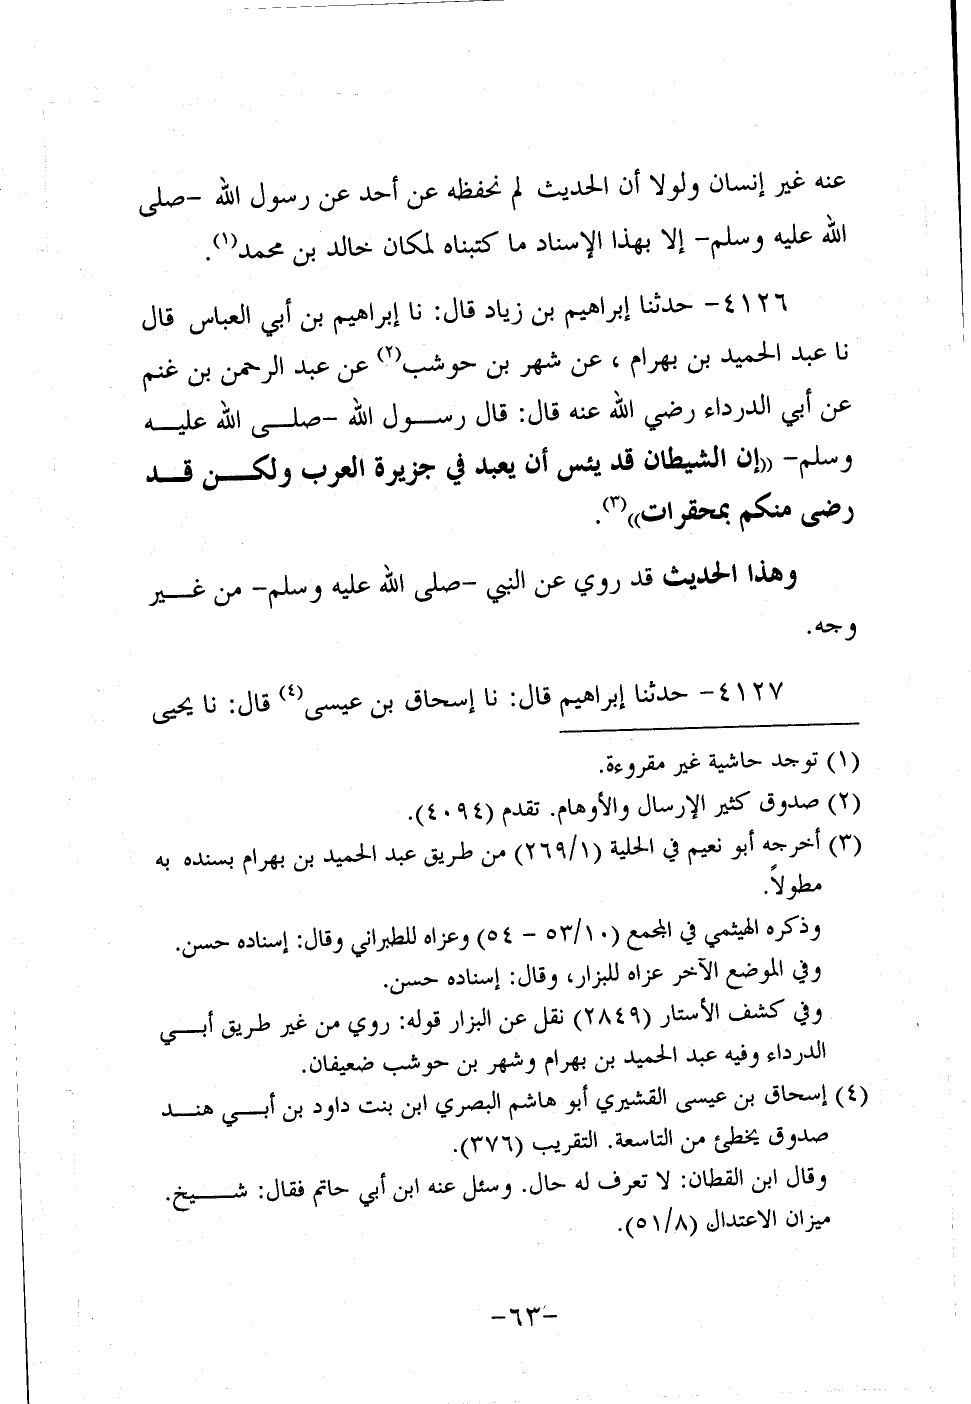 عنه غير إنسان ولولا أن الحديث لم نحفظه عن أحد عن رسول الله -صلى
الله عليه وسلم- إلا بهذا الإسناد ما كتبناه لمكان خالد بن محمد(١).
٤١٢٦- حدثنا إبراهيم بن زياد قال: نا إبراهيم بن أبي العباس قال
نا عبد الحميد بن بهرام ، عن شهر بن حوشب(٢) عن عبد الرحمن بن غنم
عن أبي الدرداء رضي الله عنه قال: قال رسول الله -صلى الله عليه
وسلم- ((إن الشيطان قد يئس أن يعبد في جزيرة العرب ولكن قد
رضى منكم بمحقرات))(٣).
وهذا الحديث قد روي عن النبي -صلى الله عليه وسلم- من غير
وجه.
٤١٢٧- حدثنا إبراهيم قال: نا إسحاق بن عيسى(٤) قال: نا يحيى
(١) توجد حاشية غير مقروءة.
(٢) صدوق كثير الإرسال والأوهام. تقدم (٤٠٩٤).
(٣) أخرجه أبو نعيم في الحلية (٢٦٩/١) من طريق عبد الحميد بن بهرام بسنده به
مطولاً.
وذكره الهيثمي في المجمع (٥٣/١٠ – ٥٤) وعزاه للطبراني وقال: إسناده حسن.
وفي الموضع الآخر عزاه للبزار، وقال: إسناده حسن.
وفي كشف الأستار (٢٨٤٩) نقل عن البزار قوله: روي من غير طريق أبي
الدرداء وفيه عبد الحميد بن بهرام وشهر بن حوشب ضعيفان.
(٤) إسحاق بن عيسى القشيري أبو هاشم البصري ابن بنت داود بن أبي هند
صدوق يخطئ من التاسعة. التقريب (٣٧٦).
وقال ابن القطان: لا تعرف له حال. وسئل عنه ابن أبي حاتم فقال: شيخ.
ميزان الاعتدال (٥١/٨).
-٦٣-